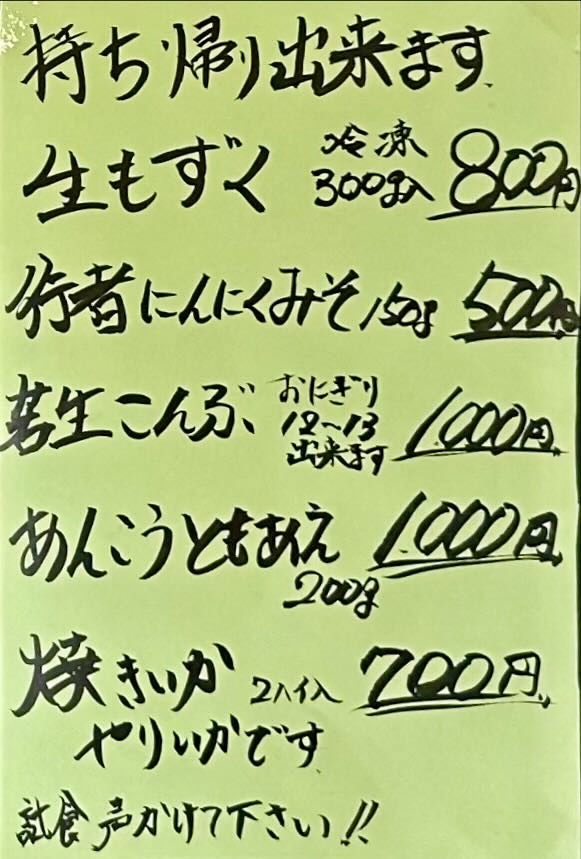 持ち帰り出来ます
生もずく 冷凍 300g入 800円
行者にんにくみそ 150g 500円
若生こんぶ おにぎり 12〜13 出来ます 1.000円
あんこうともあえ 200g 1.000円
焼きいか 2ハイ入 700円
やりいかです
試食 声かけて下さい!!